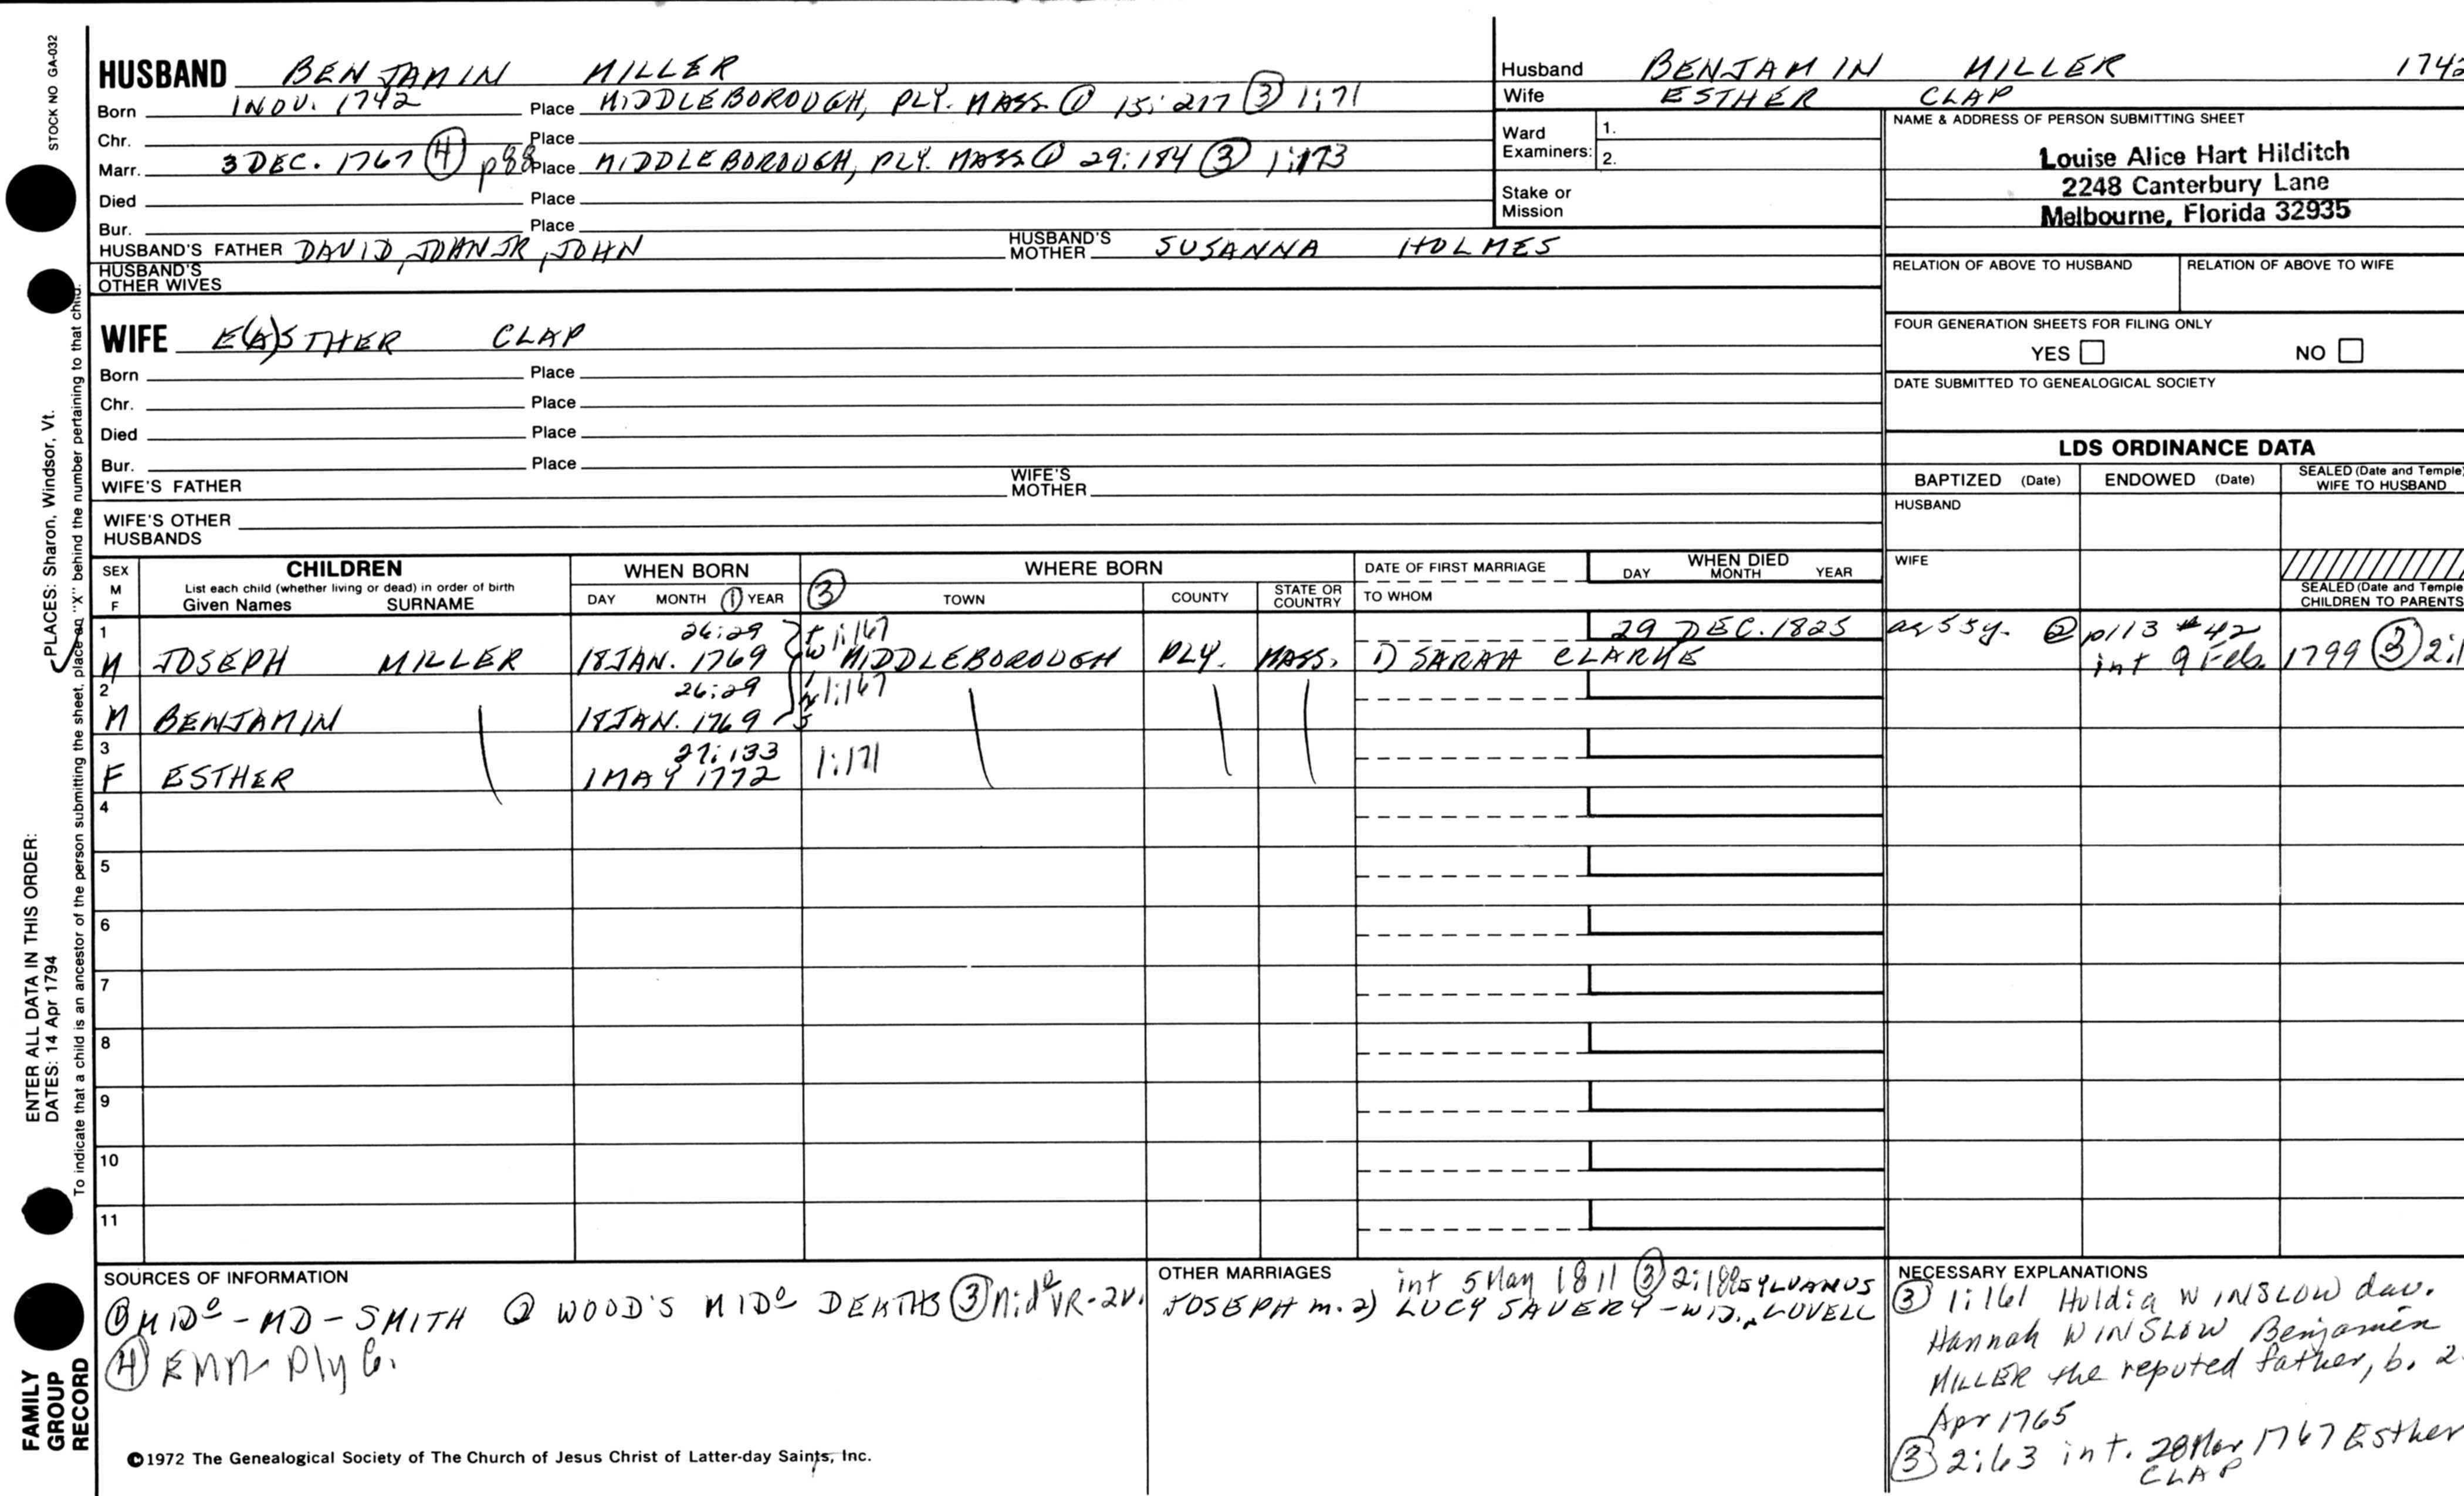 STOCK NO GA-032
HUSBAND BENJAMIN MILLER
Born 1 NOV. 1742 Place MIDDLEBOROUGH, PLY. MASS. ① 15:217 ③ 1:71
Chr. Place
Marr. 3 DEC. 1767 ④ p88 Place MIDDLEBOROUGH, PLY. MASS ① 29:184 ③ 1:173
Died Place
Bur. Place
HUSBAND'S FATHER DAVID, JOHN JR, JOHN HUSBAND'S MOTHER SUSANNA HOLMES
HUSBAND'S OTHER WIVES
WIFE E(A)STHER CLAP
Born Place
Chr. Place
Died Place
Bur. Place
WIFE'S FATHER WIFE'S MOTHER
WIFE'S OTHER HUSBANDS
Husband BENJAMIN MILLER 1742
Wife ESTHER CLAP
Ward Examiners: 1.
2.
Stake or Mission
NAME & ADDRESS OF PERSON SUBMITTING SHEET
Louise Alice Hart Hilditch
2248 Canterbury Lane
Melbourne, Florida 32935
RELATION OF ABOVE TO HUSBAND RELATION OF ABOVE TO WIFE
FOUR GENERATION SHEETS FOR FILING ONLY
YES NO
DATE SUBMITTED TO GENEALOGICAL SOCIETY
LDS ORDINANCE DATA
BAPTIZED (Date) ENDOWED (Date) SEALED (Date and Temple) WIFE TO HUSBAND
HUSBAND
WIFE
SEALED (Date and Temple) CHILDREN TO PARENTS
SEX M F CHILDREN WHEN BORN WHERE BORN DATE OF FIRST MARRIAGE WHEN DIED
List each child (whether living or dead) in order of birth
Given Names SURNAME DAY MONTH ① YEAR ③ TOWN COUNTY STATE OR COUNTRY TO WHOM DAY MONTH YEAR
1 26:29 1:167 29 DEC. 1825 ae 55y. ② p113 #42
M JOSEPH MILLER 18 JAN. 1769 MIDDLEBOROUGH PLY. MASS. 1) SARAH CLARKE int 9 Feb. 1799 ③ 2:1
2 26:29 1:167
M BENJAMIN 18 JAN. 1769
3 27:133 1:171
F ESTHER 1 MAY 1772
4
5
6
7
8
9
10
11
SOURCES OF INFORMATION
① MIDº - MD - SMITH ② WOOD'S MIDº DEATHS ③ Midº VR-2v.
④ EMM Ply Co.
OTHER MARRIAGES int 5 May 1811 ③ 2:188 SYLVANUS
JOSEPH m. 2) LUCY SAVERY - WID. LOVELL
NECESSARY EXPLANATIONS
③ 1:161 Huldia WINSLOW dau.
Hannah WINSLOW Benjamin
MILLER the reputed father, b. 2
Apr 1765
③ 2:63 int. 28 Mar 1767 Esther
CLAP
©1972 The Genealogical Society of The Church of Jesus Christ of Latter-day Saints, Inc.
ENTER ALL DATA IN THIS ORDER:
DATES: 14 Apr 1794
PLACES: Sharon, Windsor, Vt.
To indicate that a child is an ancestor of the person submitting the sheet, place an "X" behind the number pertaining to that child.
FAMILY GROUP RECORD